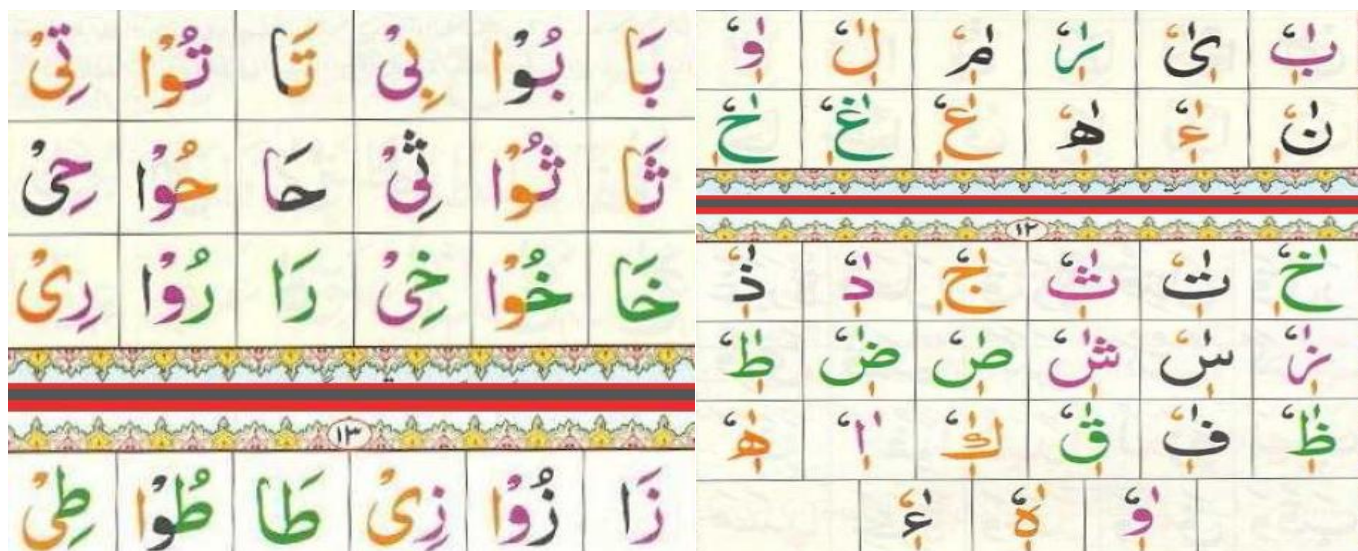 بٰٖٗ یٰٖٗ رٰٖٗ مٰٖٗ لٰٖٗ وٰٖٗ
نٰٖٗ ءٰٖٗ هٰٖٗ عٰٖٗ غٰٖٗ حٰٖٗ
١٢
خٰٖٗ تٰٖٗ ثٰٖٗ جٰٖٗ دٰٖٗ ذٰٖٗ
زٰٖٗ سٰٖٗ شٰٖٗ صٰٖٗ ضٰٖٗ طٰٖٗ
ظٰٖٗ فٰٖٗ قٰٖٗ كٰٖٗ اٰٖٗ هٰٖٗ
وٰٖٗ هٰٖٗ ءٰٖٗ
بَا بُوْا بِیْ تَا تُوْا تِیْ
ثَا ثُوْا ثِیْ حَا حُوْا حِیْ
خَا خُوْا خِیْ رَا رُوْا رِیْ
١٣
زَا زُوْا زِیْ طَا طُوْا طِیْ